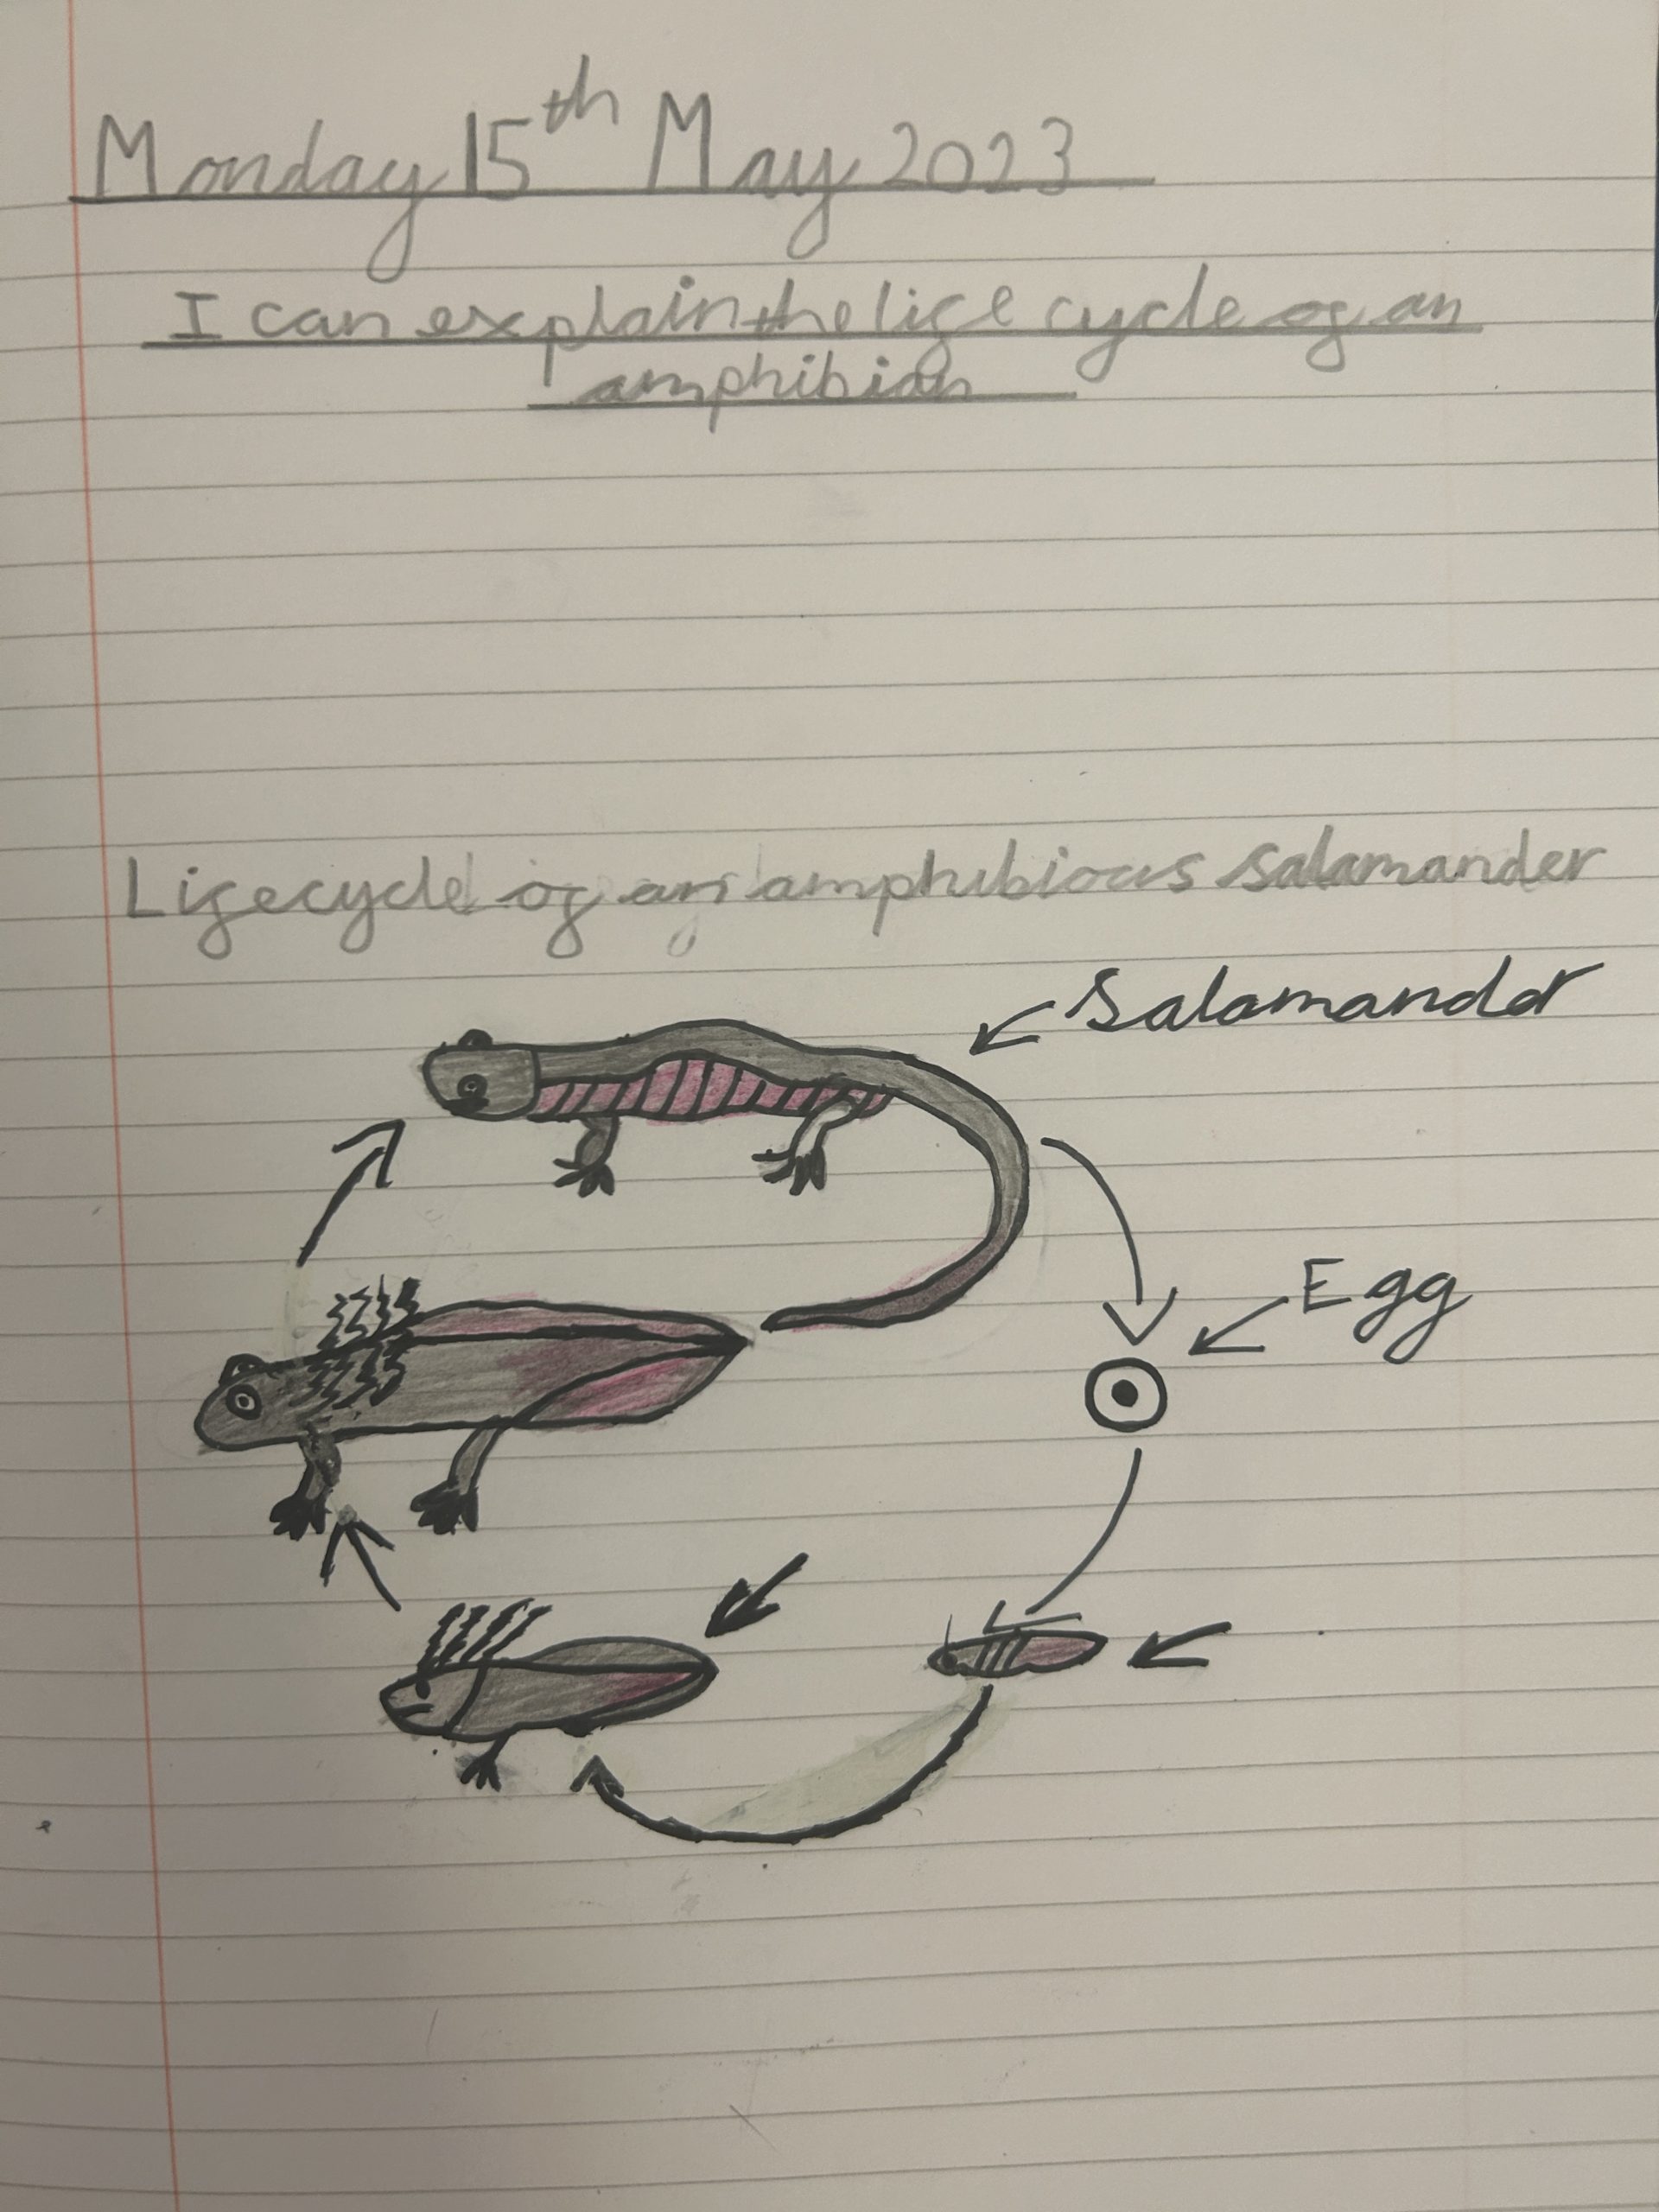 Monday 15th May 2023
I can explain the life cycle of an
amphibian
Lifecycle of an amphibious salamander
Salamander
Egg